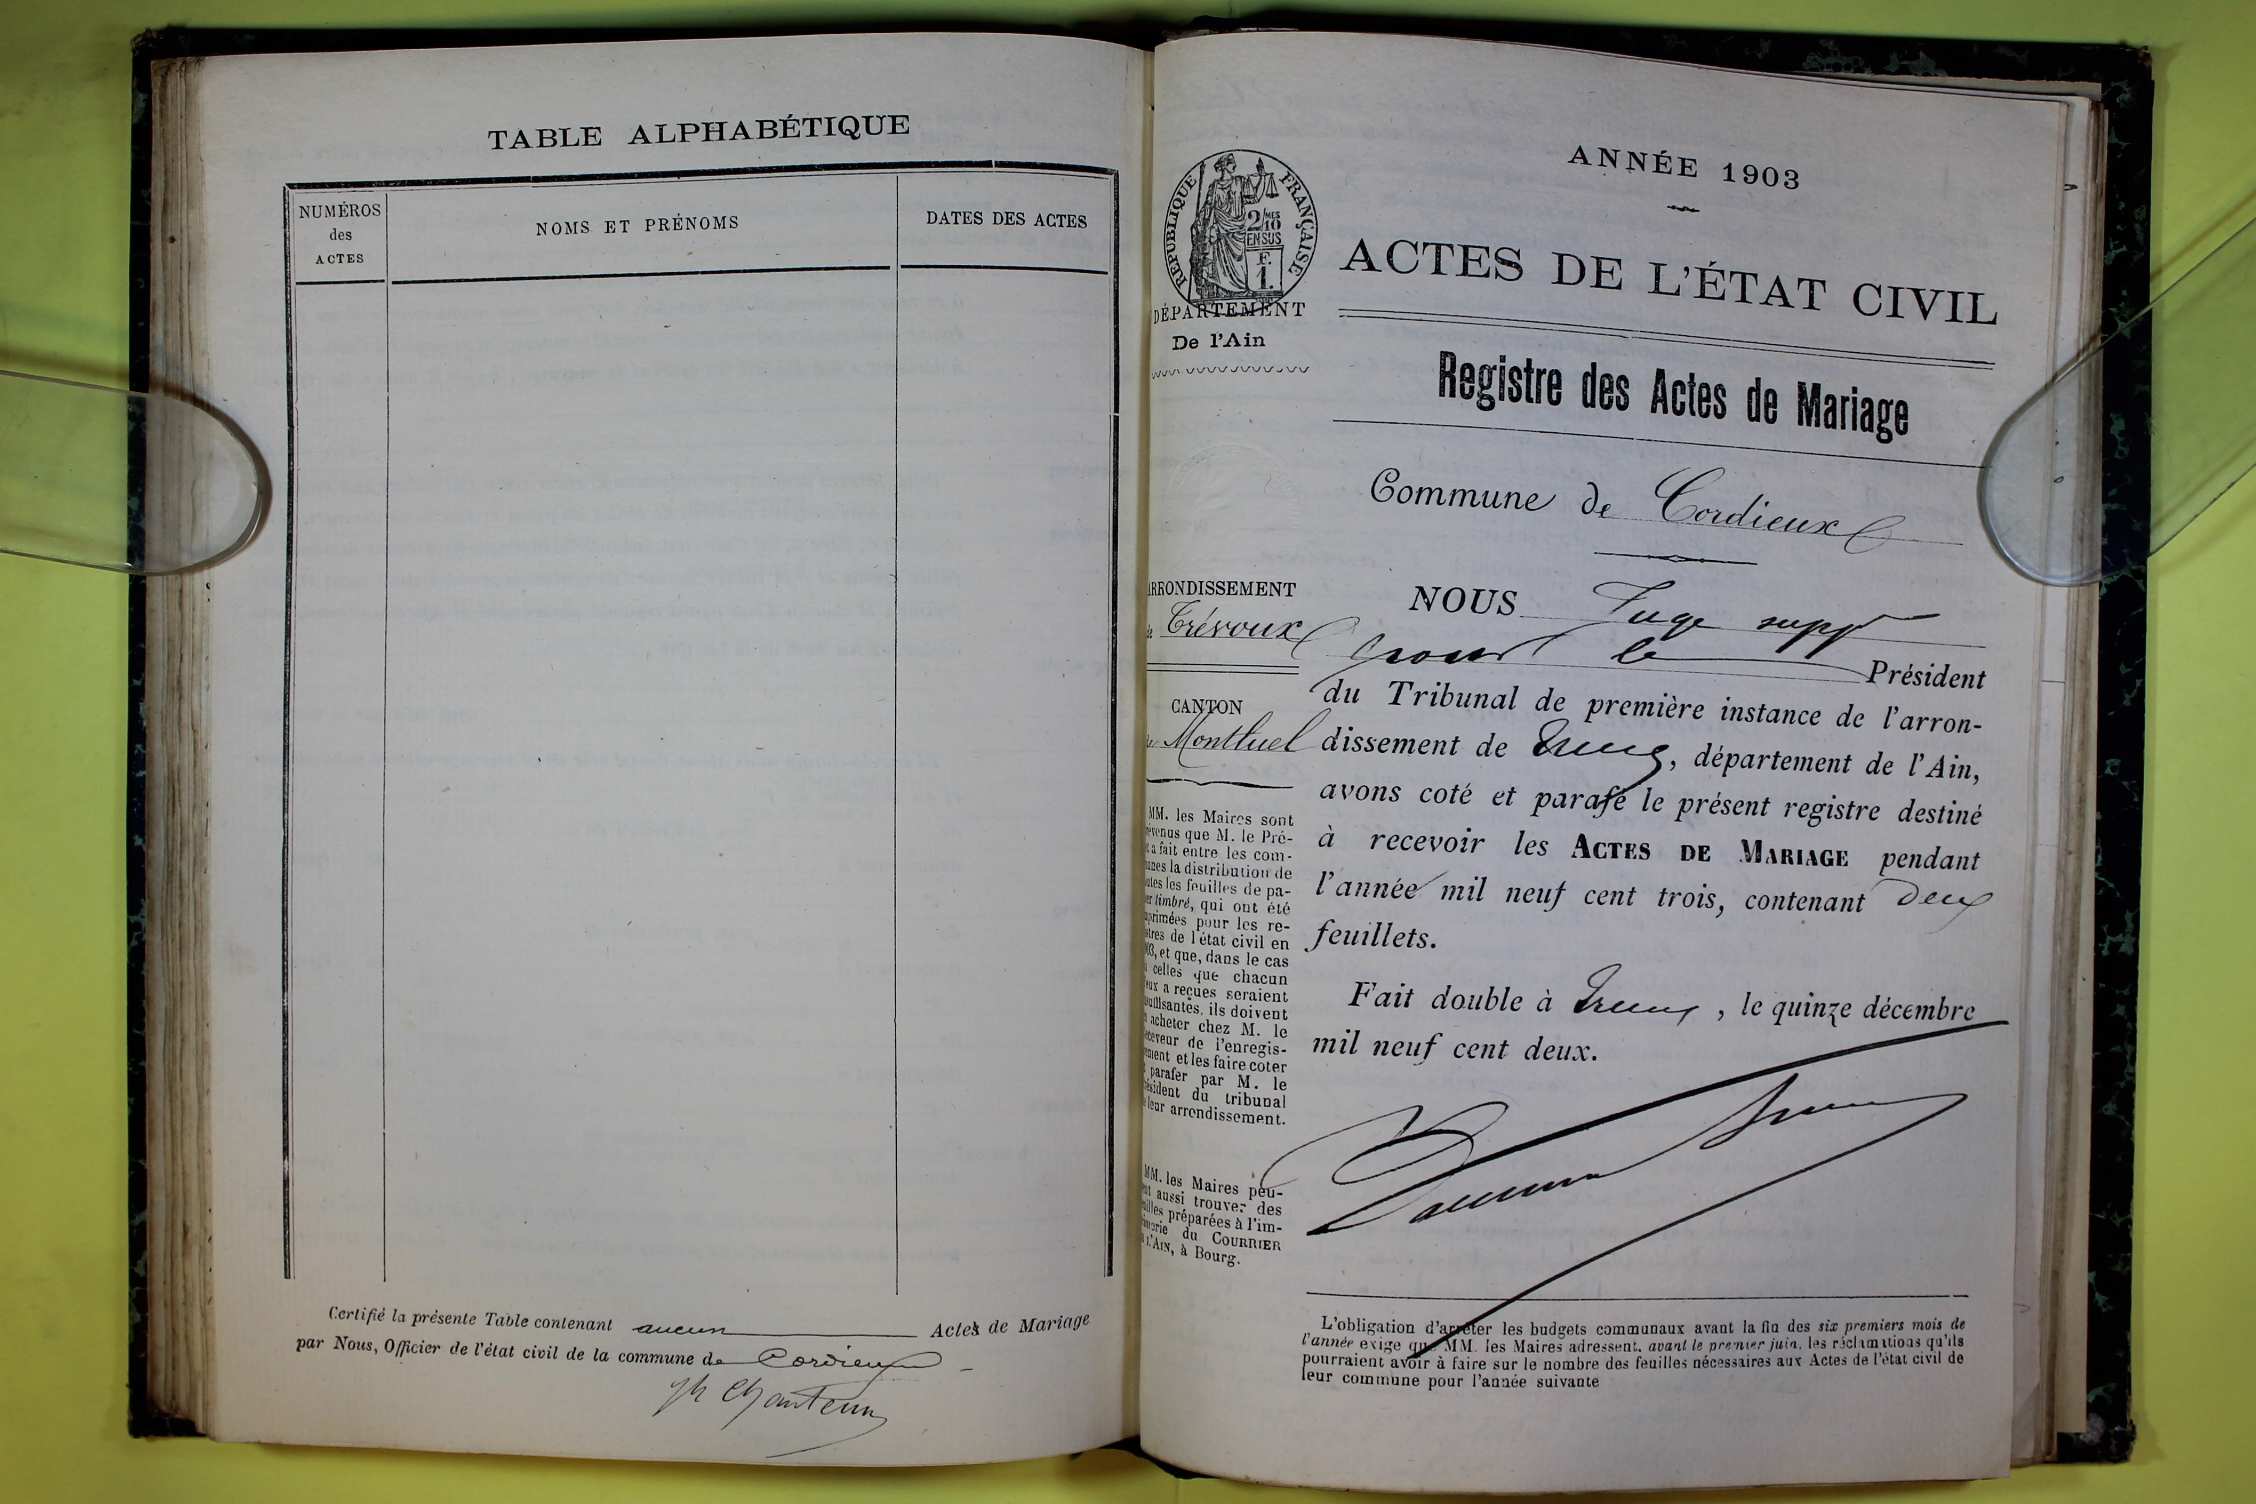 TABLE ALPHABÉTIQUE
NUMÉROS
des
ACTES
NOMS ET PRÉNOMS
DATES DES ACTES
Certifié la présente Table contenant aucun Actes de Mariage
par Nous, Officier de l'état civil de la commune de Cordieux
ANNÉE 1903
RÉPUBLIQUE FRANÇAISE
2/10 MES
EN SUS
F.
1.
DÉPARTEMENT
De l'Ain
ACTES DE L'ÉTAT CIVIL
Registre des Actes de Mariage
Commune de Cordieux
RRONDISSEMENT
de Trévoux
CANTON
de Montluel
MM. les Maires sont
évenus que M. le Pré-
t a fait entre les com-
unes la distribution de
utes les feuilles de pa-
er timbré, qui ont été
primées pour les re-
stres de l'état civil en
03, et que, dans le cas
ù celles que chacun
eux a reçues seraient
suffisantes, ils doivent
n acheter chez M. le
eceveur de l'enregis-
ement et les faire coter
t parafer par M. le
ésident du tribunal
e leur arrondissement.
MM. les Maires peu-
ent aussi trouver des
uilles préparées à l'im-
imerie du COURRIER
e l'AIN, à Bourg.
NOUS Juge supp
pour le Président
du Tribunal de première instance de l'arron-
dissement de Trévoux, département de l'Ain,
avons coté et parafé le présent registre destiné
à recevoir les ACTES DE MARIAGE pendant
l'année mil neuf cent trois, contenant deux
feuillets.
Fait double à Trévoux, le quinze décembre
mil neuf cent deux.
L'obligation d'arrêter les budgets communaux avant la fin des six premiers mois de
l'année exige que MM. les Maires adressent, avant le premier juin, les réclamations qu'ils
pourraient avoir à faire sur le nombre des feuilles nécessaires aux Actes de l'état civil de
leur commune pour l'année suivante